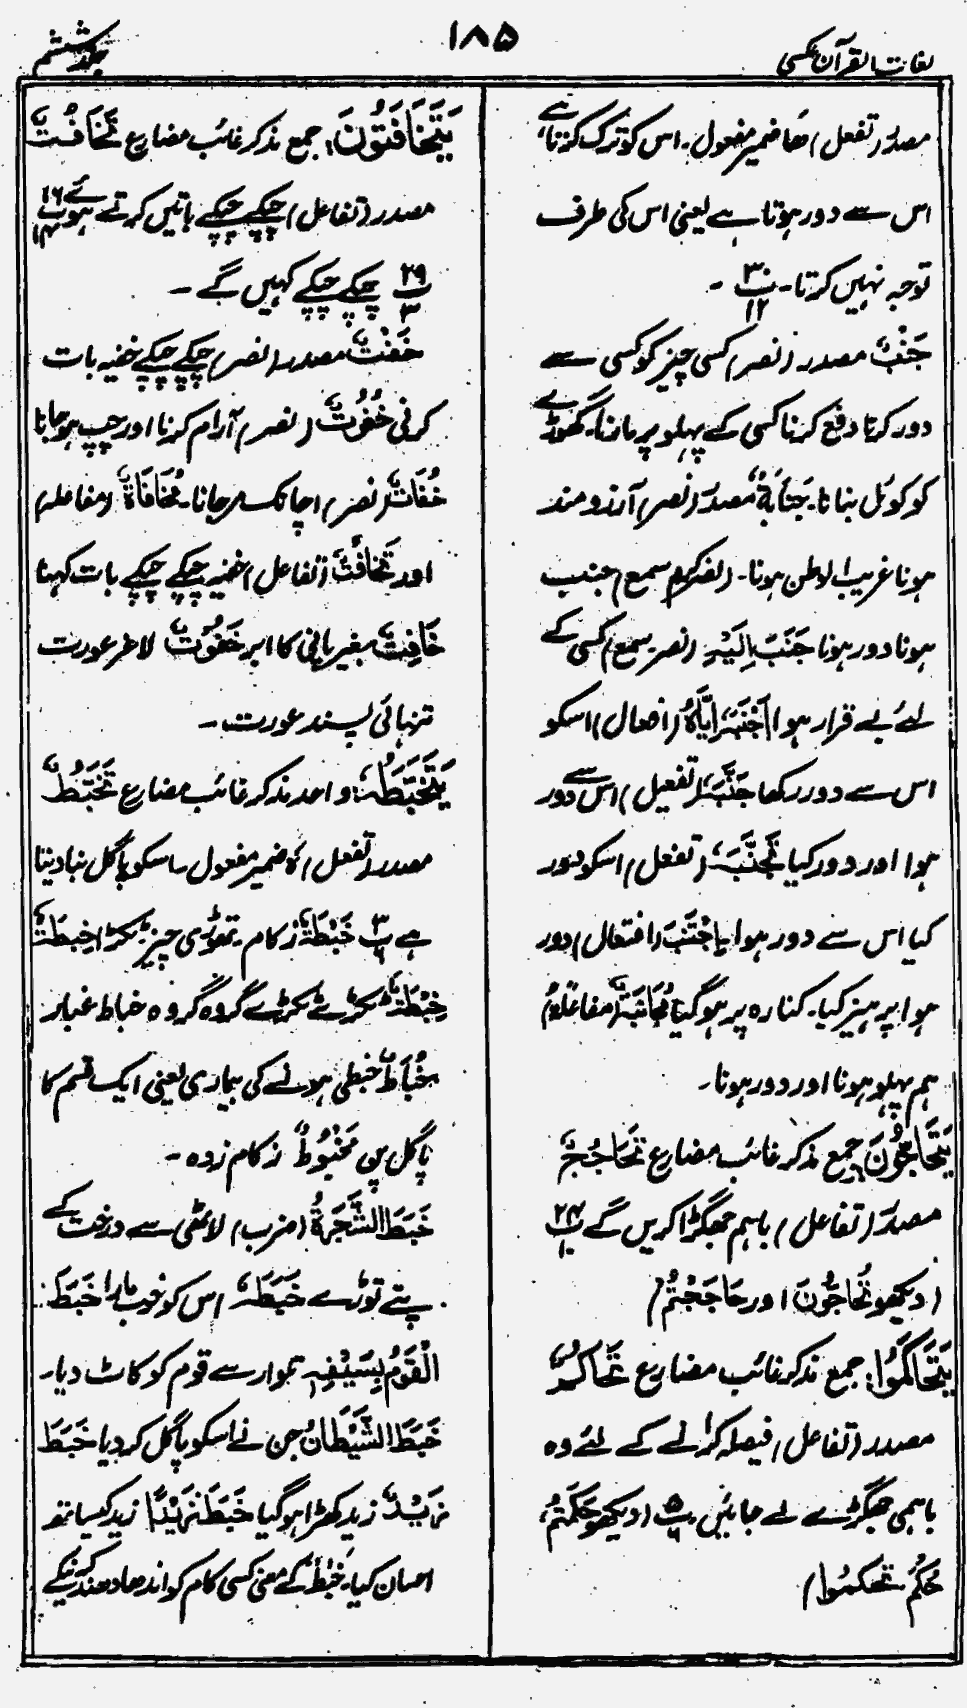 لغات القرآن عکسی
۱۸۵
جلد ششم
مصدر (تفعل) ھا ضمیر مفعول۔ اس کو ترک کرتا ہے،
اس سے دور ہوتا ہے یعنی اس کی طرف
توجہ نہیں کرتا۔ پ۳۰ ۱۲ ۔
جَنْبٌ مصدر۔ (نصر) کسی چیز کو کسی سے
دور کرنا دفع کرنا کسی کے پہلو پر مارنا۔ گھوڑے
کو کوتل بنانا۔ جَنَابَةٌ مصدر (نصر) آرزومند
ہونا غریب الوطن ہونا۔ (نصر کرم سمع) جنبی
ہونا دور ہونا جَنَبَ اِلَیْہِ (نصر۔ سمع) کسی کے
لئے بے قرار ہوا اَجْنَبَ اِیَّاہُ (افعال) اسکو
اس سے دور رکھا جَنَّبَہٗ (تفعیل) اس سے دور
ہوا اور دور کیا تَجَنَّبَہٗ (تفعل) اسکو دور
کیا اس سے دور ہوا یا اِجْتَنَبَ (افتعال) دور
ہوا پرہیز کیا۔ کنارہ پر ہوگیا مُجَانَبَةٌ (مفاعلۃ)
ہم پہلو ہونا اور دور ہونا۔
یَتَحَاجُّوْنَ جمع مذکر غائب مضارع تَحَاجُجٌ
مصدر (تفاعل) باہم جھگڑا کریں گے پ۲۴ ۱۰
(دیکھو تُحَاجُّوْنَ اور حَاجَجْتُمْ)
یَتَحَاکَمُوْا: جمع مذکر غائب مضارع تَحَاکُمٌ
مصدر (تفاعل) فیصلہ کرانے کے لئے وہ
باہمی جھگڑے لے جائیں پ۵ ۶ (دیکھو حَکَمْتُمْ،
حُکْمٌ تحکموا)
یَتَخَافَتُوْنَ: جمع مذکر غائب مضارع تَخَافُتٌ
مصدر (تفاعل) چپکے چپکے باتیں کرتے ہوئے پ۱۶ ۱۴
پ۲۹ ۳ چپکے چپکے کہیں گے۔
خَفْتٌ مصدر (نصر) چپکے چپکے خفیہ بات
کرنی خُفُوْتٌ (نصر) آرام کرنا اور چپ ہو جانا
خُفَاتٌ (نصر) اچانک مر جانا۔ مُخَافَاةٌ (مفاعلہ)
اور تَخَافُتٌ (تفاعل) خفیہ چپکے چپکے بات کہنا
خَافِتٌ بغیر پانی کا ابر خَفُوْتٌ لاغر عورت
تنہائی پسند عورت۔
یَتَخَبَّطُہٗ: واحد مذکر غائب مضارع تَخَبُّطٌ
مصدر (تفعل) ہُ ضمیر مفعول۔ اسکو پاگل بنا دیتا
ہے پ۳ ۶ خَبْطَةٌ زکام۔ تھوڑی چیز ٹکڑا خِبْطَةٌ
خِبْطَةٌ ٹکڑے ٹکڑے گروہ گروہ خباط غبار
خُبَاطٌ خبطی ہونے کی بیماری یعنی ایک قسم کا
پاگل پن مَخْبُوْطٌ زکام زدہ۔
خَبَطَ الشَّجَرَةَ (ضرب) لاٹھی سے درخت کے
پتے توڑے خَبَطَہٗ اس کو خوب مارا خَبَطَ
الْقَوْمَ بِسَیْفِہٖ تلوار سے قوم کو کاٹ دیا۔
خَبَطَ الشَّیْطَانُ جن نے اسکو پاگل کر دیا خَبَطَ
زَیْدٌ زید کھڑا ہوگیا خَبَطَ زَیْدًا زید کیساتھ
احسان کیا۔ خَبْطٌ کے معنی کسی کام کو اندھا دھند کرنیکے